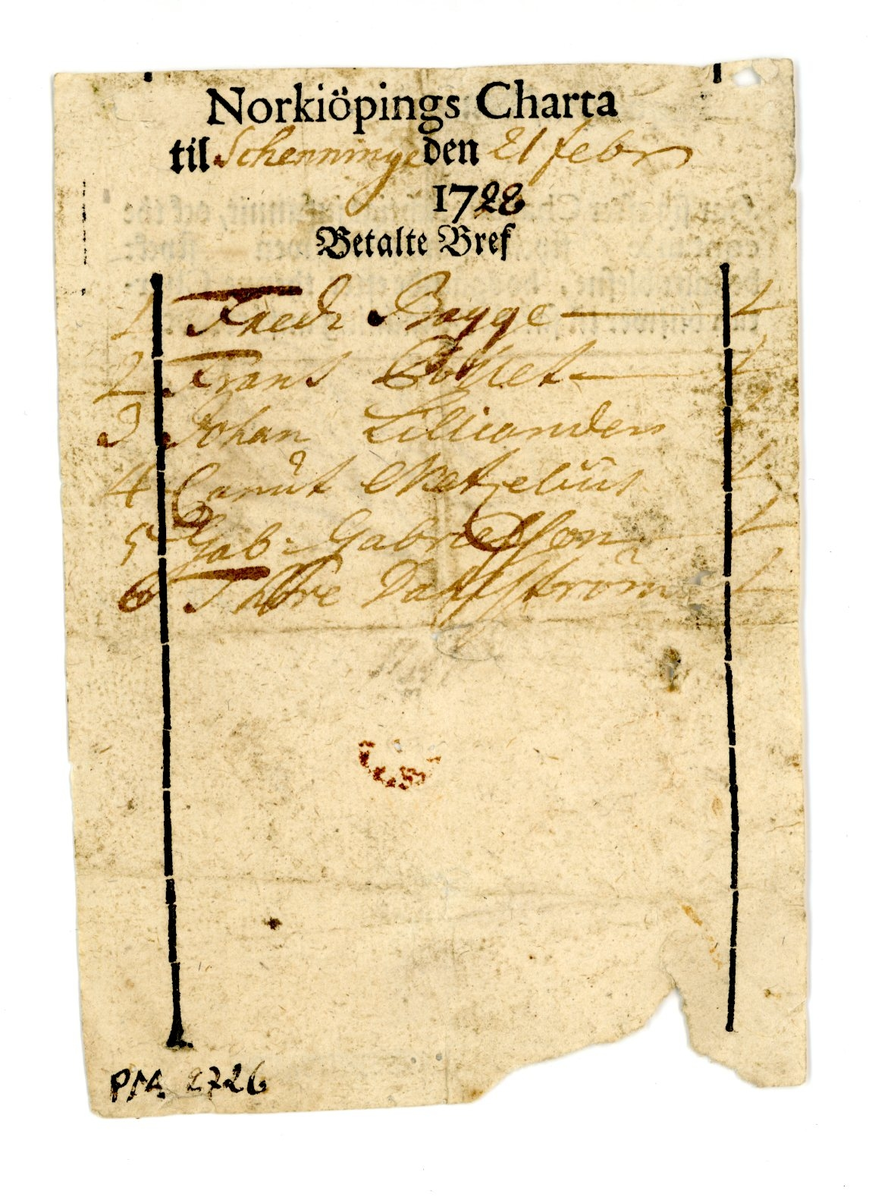 Norkiöpings Charta
til Schenninge den 21 febr
1728
Betalte Bref
1 Fredr Bagge — 1
2 Frans — 1
3 Johan Lilliander 1
4 Canut Metzelius 1
5 Gab: Gabrielsson 1
6 Thore Dahlström 1
PM. 2726